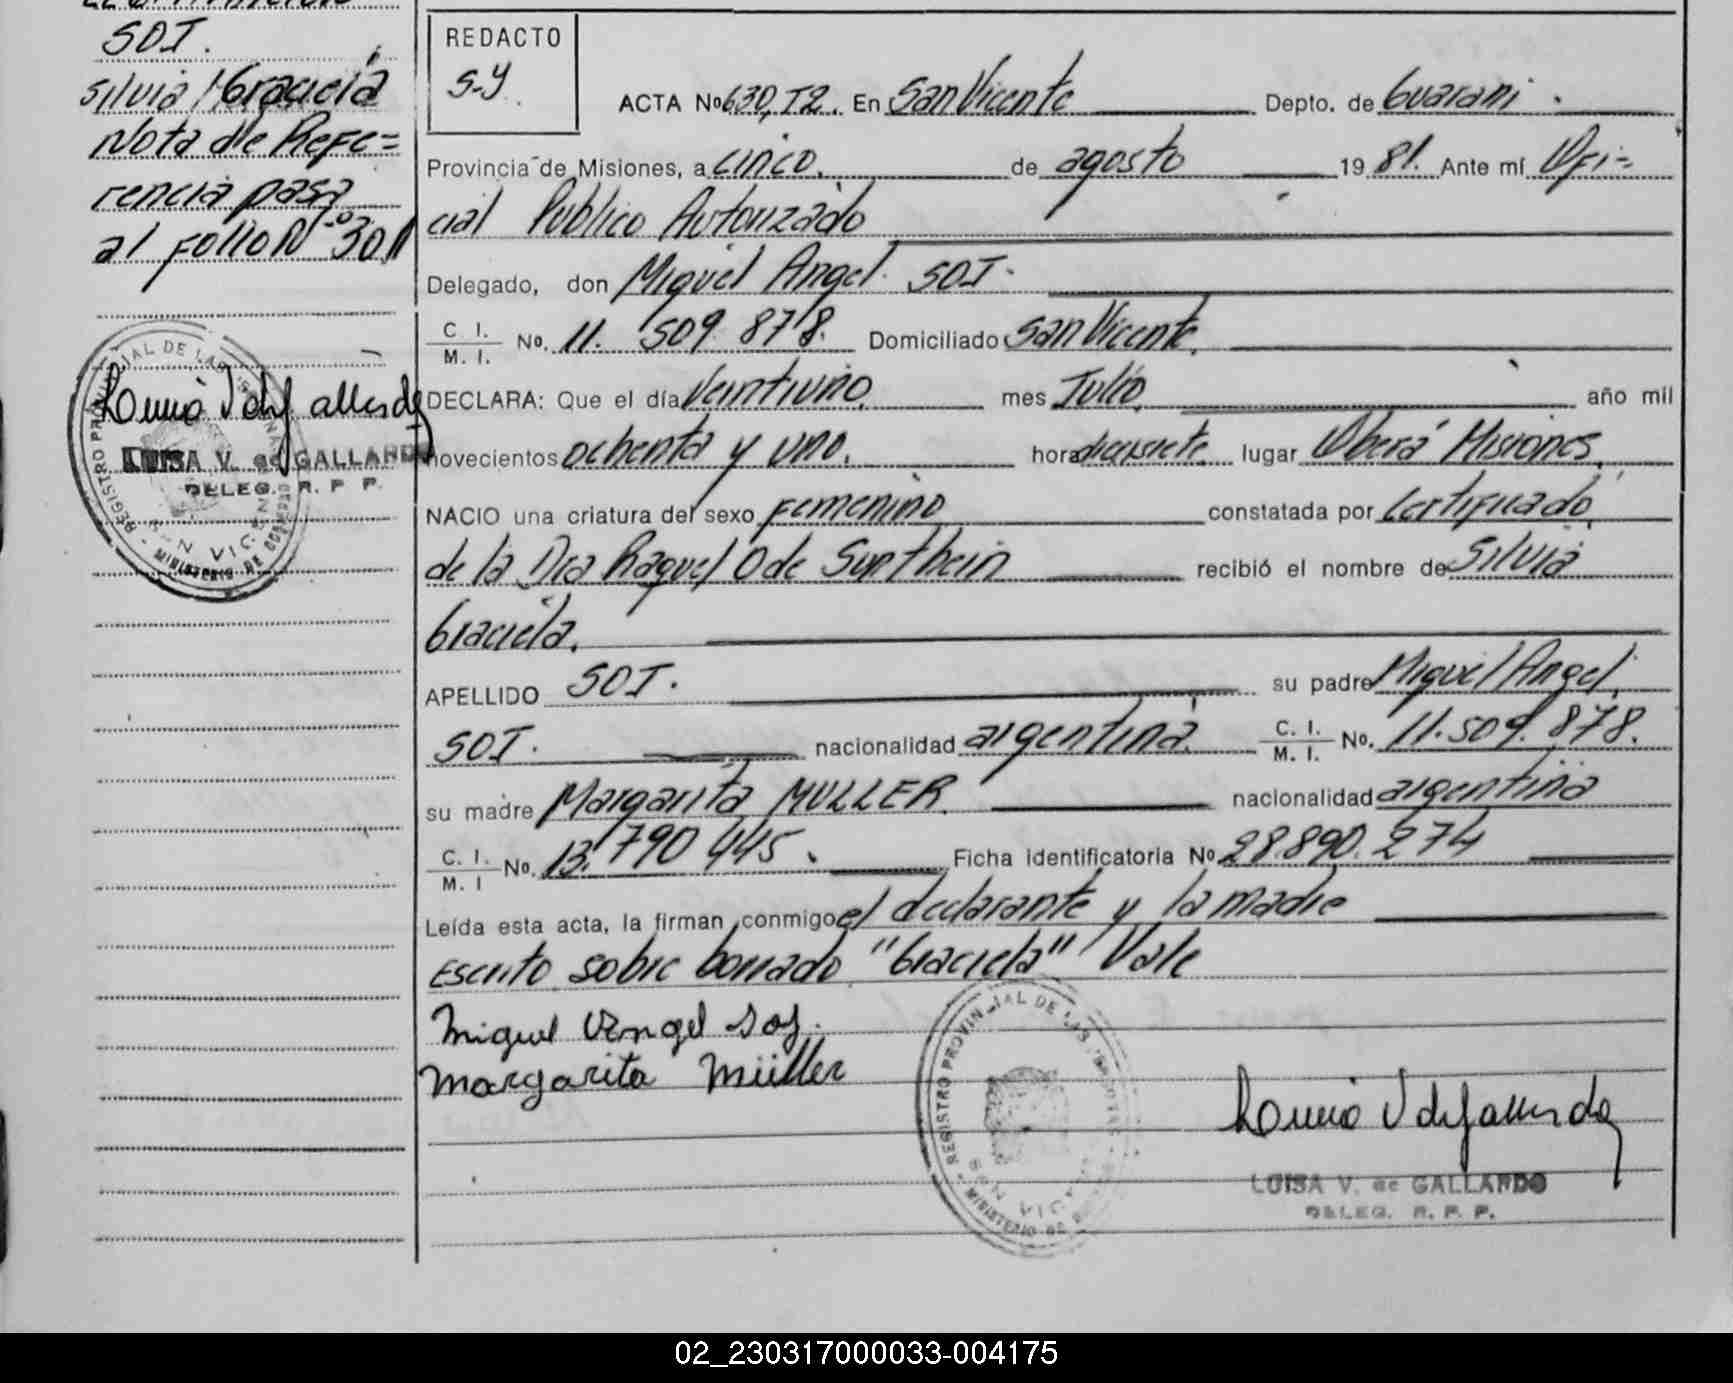 SOI.
Silvia Graciela
Nota de Refe=
rencia pasa
al folio Nº 301
REGISTRO PROVINCIAL DE LAS PERSONAS
LUISA V. de GALLARDO
DELEG. R. P. P.
SAN VICENTE
MINISTERIO DE GOBIERNO
REDACTO
S-Y.
ACTA Nº 630, T2. En San Vicente Depto. de Guarani.
Provincia de Misiones, a cinco. de agosto 1981. Ante mí Ofi=
cial Publico Autorizado
Delegado, don Miguel Angel SOI.
C. I. / M. I. No. 11. 509. 878. Domiciliado San Vicente.
DECLARA: Que el día Veintiuno. mes Julio. año mil
novecientos ochenta y uno. hora diecisiete. lugar Oberá Misiones.
NACIO una criatura del sexo femenino constatada por Certificado
de la Dra Raquel O de recibió el nombre de Silvia
Graciela.
APELLIDO SOI. su padre Miguel Angel
SOI. nacionalidad argentina C. I. / M. I. No. 11.509.878.
su madre Margarita MULLER. nacionalidad argentina
C. I. / M. I No. 13.790 445. Ficha identificatoria No 28.890.274
Leída esta acta, la firman conmigo el declarante y la madre
Escrito sobre borrado "Graciela" Vale
Miguel Angel
Margarita Müller
REGISTRO PROVINCIAL DE LAS PERSONAS
SAN VICENTE
MINISTERIO DE
LUISA V. de GALLARDO
DELEG. R. P. P.
02_230317000033-004175